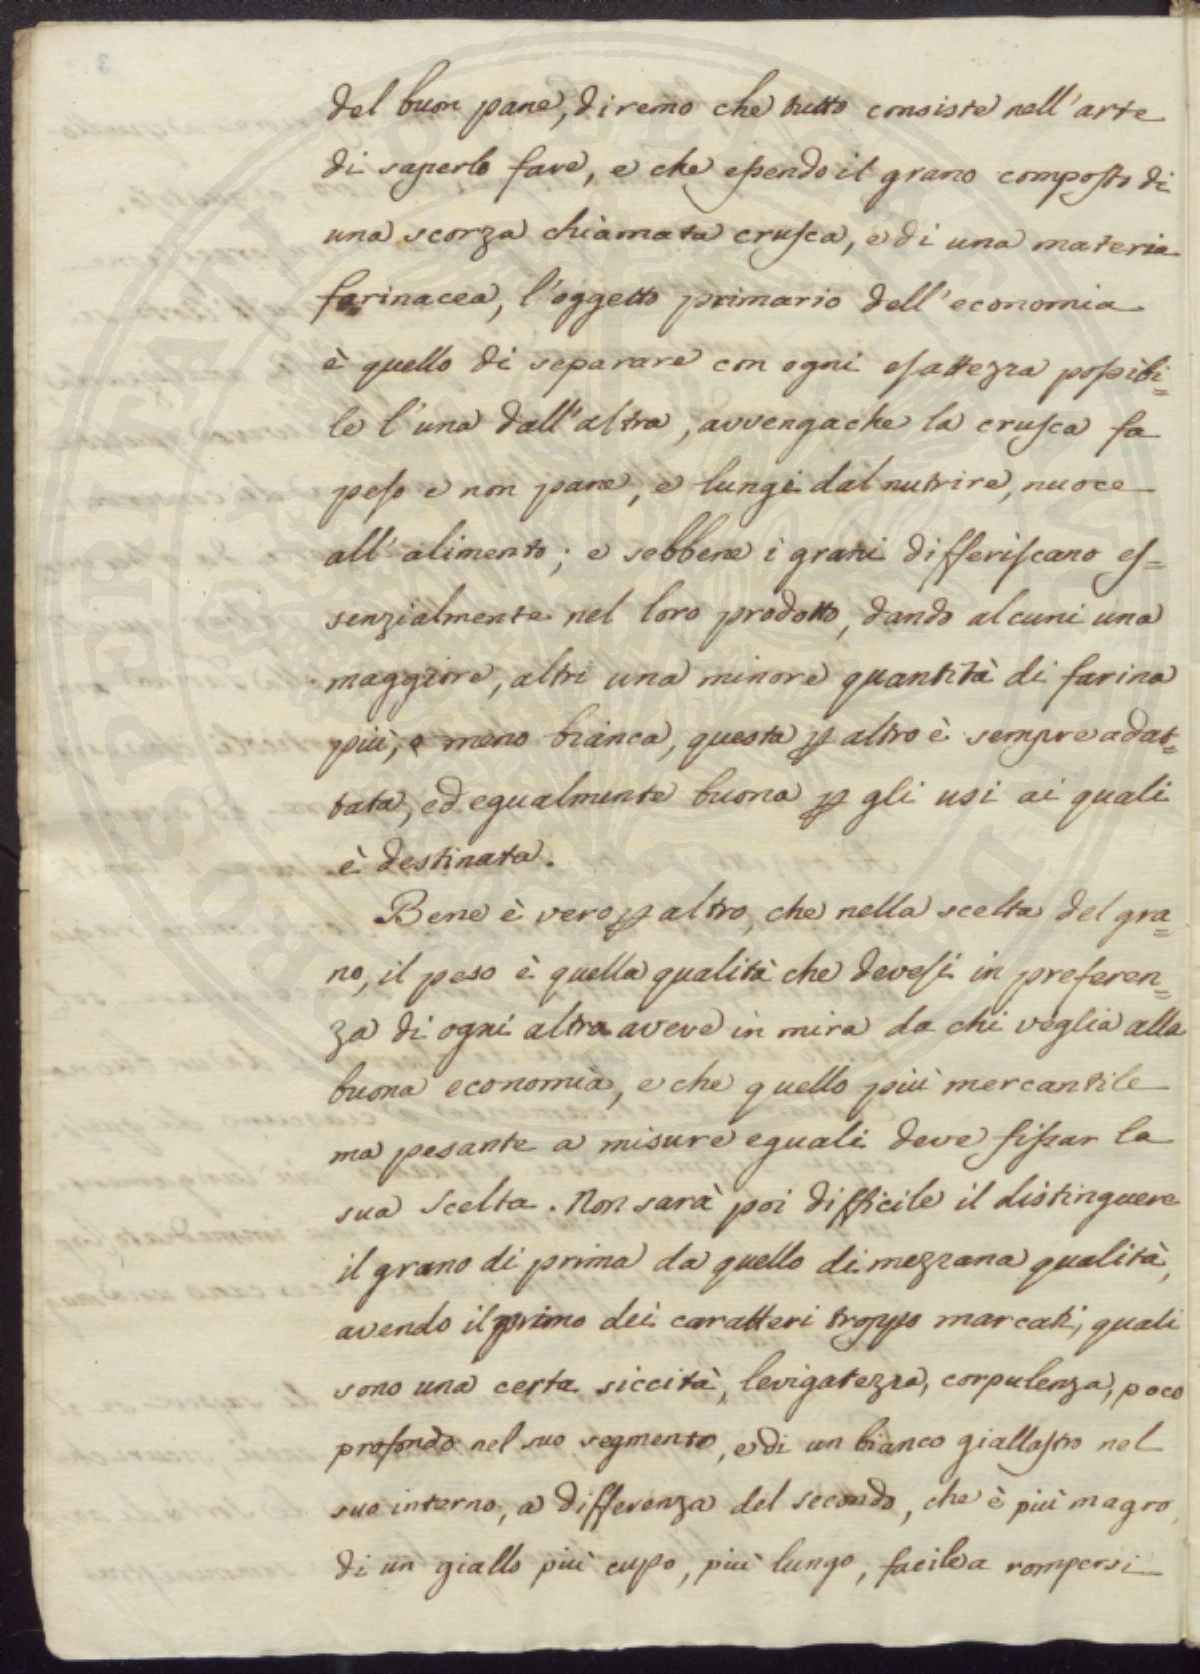 del buon pane, diremo che tutto consiste nell'arte
di saperlo fare, e che eſsendo il grano compoſto di
una scorza chiamata cruſca, e di una materia
farinacea, l'oggetto primario dell'economia
è quello di separare con ogni eſattezza poſsibi=
le l'una dall'altra, avvengache la cruſca fa
peſo e non pane, e lungi dal nutrire, nuoce
all'alimento; e sebbene i grani differiſcano eſ=
senzialmente nel loro prodotto, dando alcuni una
maggiore, altri una minore quantità di farina
più, o meno bianca, questa ꝑ altro è sempre adat=
tata, ed egualmente buona ꝑ gli usi ai quali
è destinata.
Bene è vero ꝑ altro, che nella scelta del gra=
no, il peso è quella qualità che deveſi in preferen=
za di ogni altra avere in mira da chi veglia alla
buona economia, e che quello più mercantile
ma pesante a misure eguali deve fiſsar la
sua scelta. Non sarà poi difficile il distinguere
il grano di prima da quello di mezzana qualità,
avendo il primo dei caratteri troppo marcati, quali
sono una certa siccità, levigatezza, corpulenza, poco
profondo nel suo segmento, e di un bianco giallaſtro nel
suo interno, a differenza del secondo, che è più magro,
di un giallo più cupo, più lungo, facile a rompersi